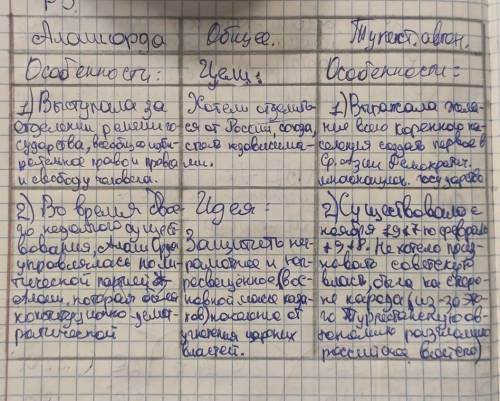 Алашорда
Общее.
Туркест. автон.
Особенности:
Цели:
Особенности:
1) Выступала за
отделении религии го
сударства, всеобщее изби
рательное право и права
и свободу человека.
Хотели отделить
ся от России, созда,
стать независимы-
ми.
1) Выражала жела-
ние всего коренного на-
селения создав первое в
Ср. Азии демократич.
многонацион. государство
2) Во время свое-
го недолгого сущест
вования, Алаш Орда
управлялась поли-
тической партией
Алаш, которая была
конституционно-демок-
ратической
Идея:
Защитить негр
грамотное и неп
росвещённое (в ос-
новной массе каза-
ков) население от
угнетения царских
властей.
2) Существовало с
ноября 1917 по февраль
1918. Не хотело приз-
новать советскую
власть, была на сторо-
не народа (из-за то-
го Туркестанскую ав-
тономию разгромили
российские властью)